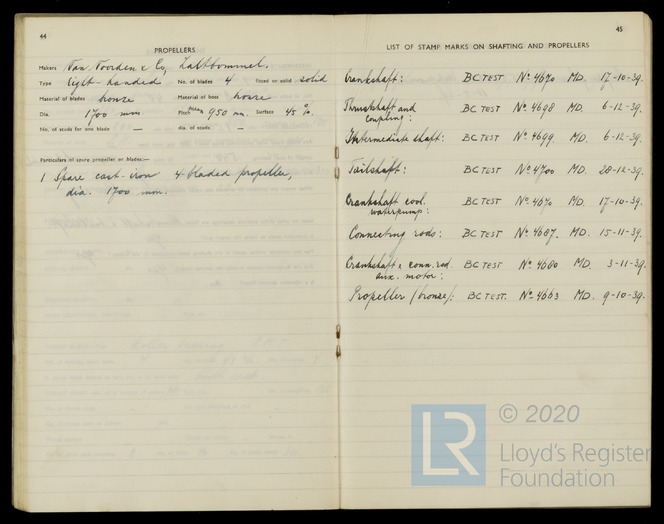 44
PROPELLERS
Makers Van Voorden & Co, Zaltbommel.
Type right-handed No. of blades 4 fitted or solid solid
Material of blades bronze Material of boss bronze
Dia. 1700 mm Pitch Mean 950 mm. Surface 45 %.
No. of studs for one blade — dia. of studs —
Particulars of spare propeller or blades:—
1 Spare cast-iron 4-bladed propeller,
dia. 1700 mm.
45
LIST OF STAMP MARKS ON SHAFTING AND PROPELLERS
Crankshaft: BC TEST No. 4670 MD. 17-10-39.
Thrustshaft and BC TEST No. 4698 MD. 6-12-39.
coupling:
Intermediate shaft: BC TEST No. 4699. MD. 6-12-39.
Tailshaft: BC TEST No. 4700 MD. 28-12-39.
Crankshaft cool. BC TEST No. 4670 MD. 17-10-39.
waterpump:
Connecting rods: BC TEST No. 4687. MD. 15-11-39.
Crankshaft & conn. rod BC TEST No. 4680 MD. 3-11-39.
aux. motor:
Propeller (bronze): BC TEST. No. 4663 MD. 9-10-39.
LR © 2020
Lloyd's Register
Foundation